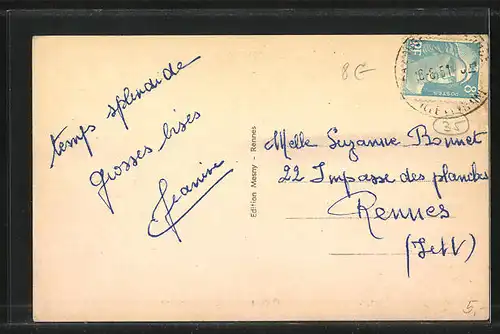 temps splendide
grosses bises
Jeanine
Edition Mesny - Rennes
8 €
RF
POSTES
8F
35
Melle Suzanne Bonnet
22 Impasse des planches
Rennes
(I et V)
5,-